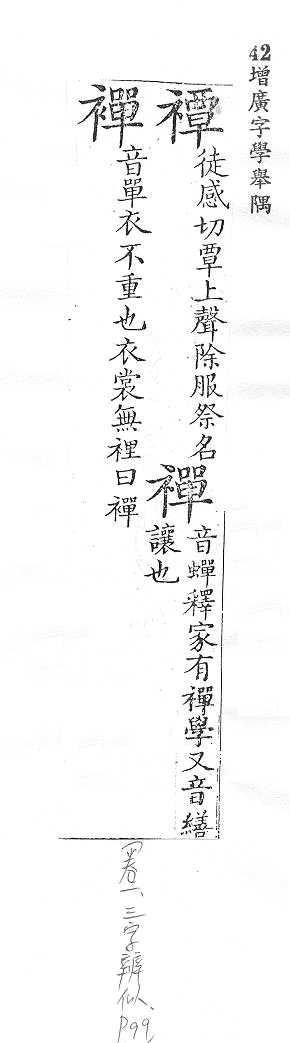 42增廣字學舉隅
禫徒感切覃上聲除服祭名
禪音蟬釋家有禪學又音繕
讓也
襌音單衣不重也衣裳無裡曰襌
卷一、三字辨似、P99